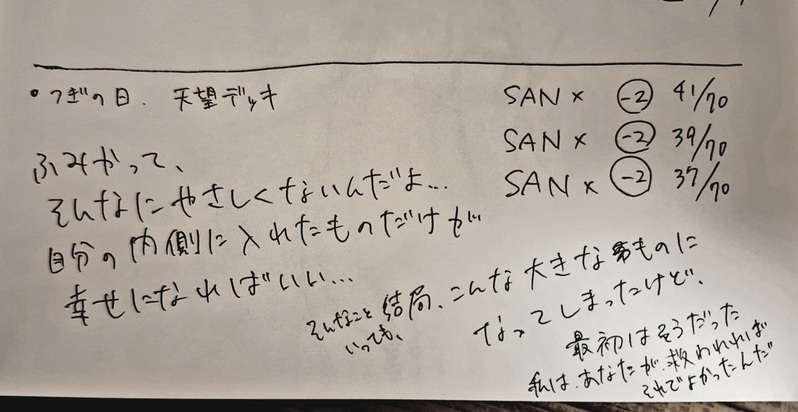 ・つぎの日. 天望デッキ
SAN × -2 41/70
SAN × -2 39/70
SAN × -2 37/70
ふみかって、
そんなにやさしくないんだよ…
自分の内側に入れたものだけが
幸せになればいい…
そんなこと
いっても、
結局、こんな大きなものに
なってしまったけど、
最初はそうだった
私は、あなたが、救われれば
それでよかったんだ